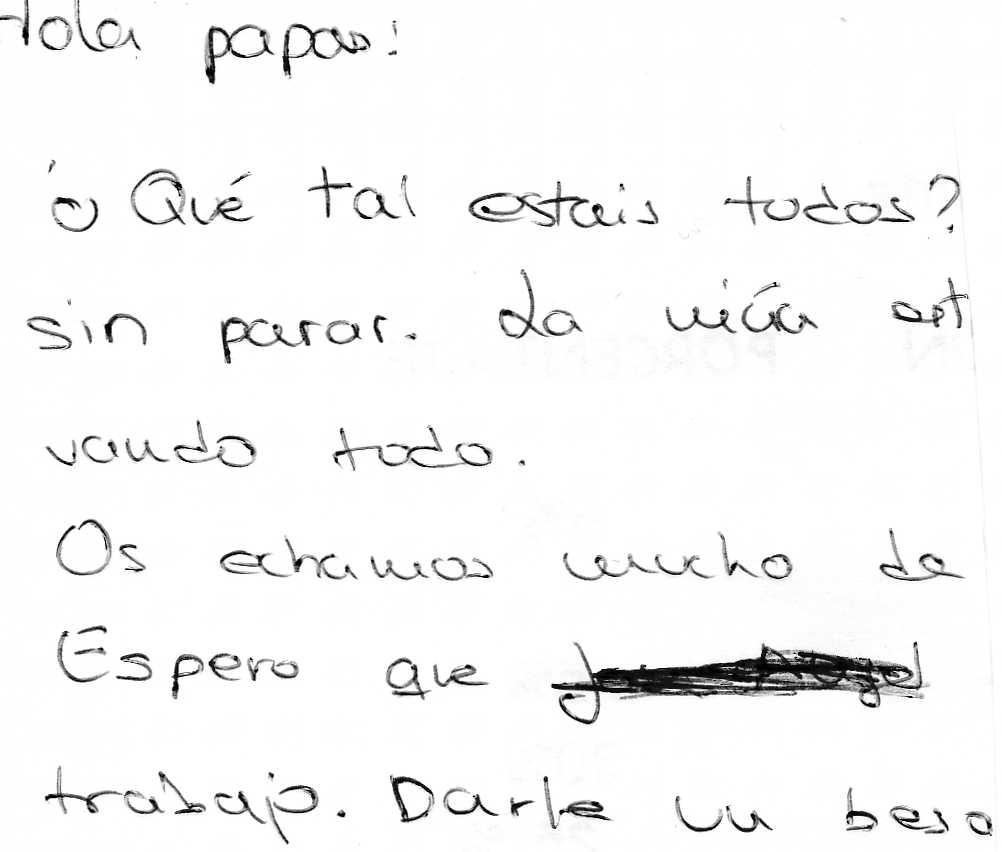 Hola papas!
¿Qué tal estais todos?
sin parar. La niña est
vando todo.
Os echamos mucho de
Espero que
trabajo. Darle un beso